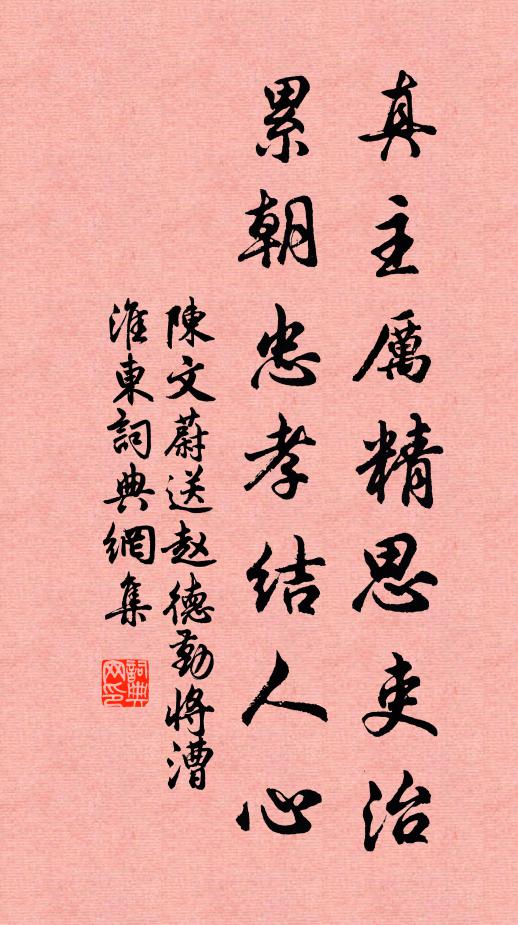 真主厲精思吏治
累朝忠孝結人心
陳文蔚送赵德勤將漕
淮東詞典網集
詞典网印